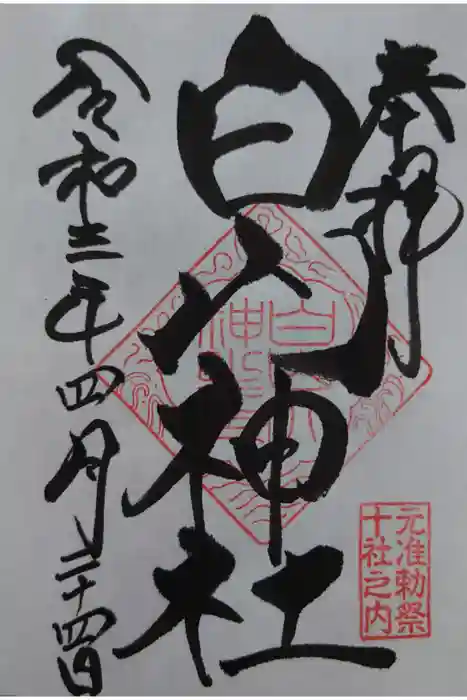 奉拝
白山神社
令和三年四月二十四日
元准勅祭
十社之内